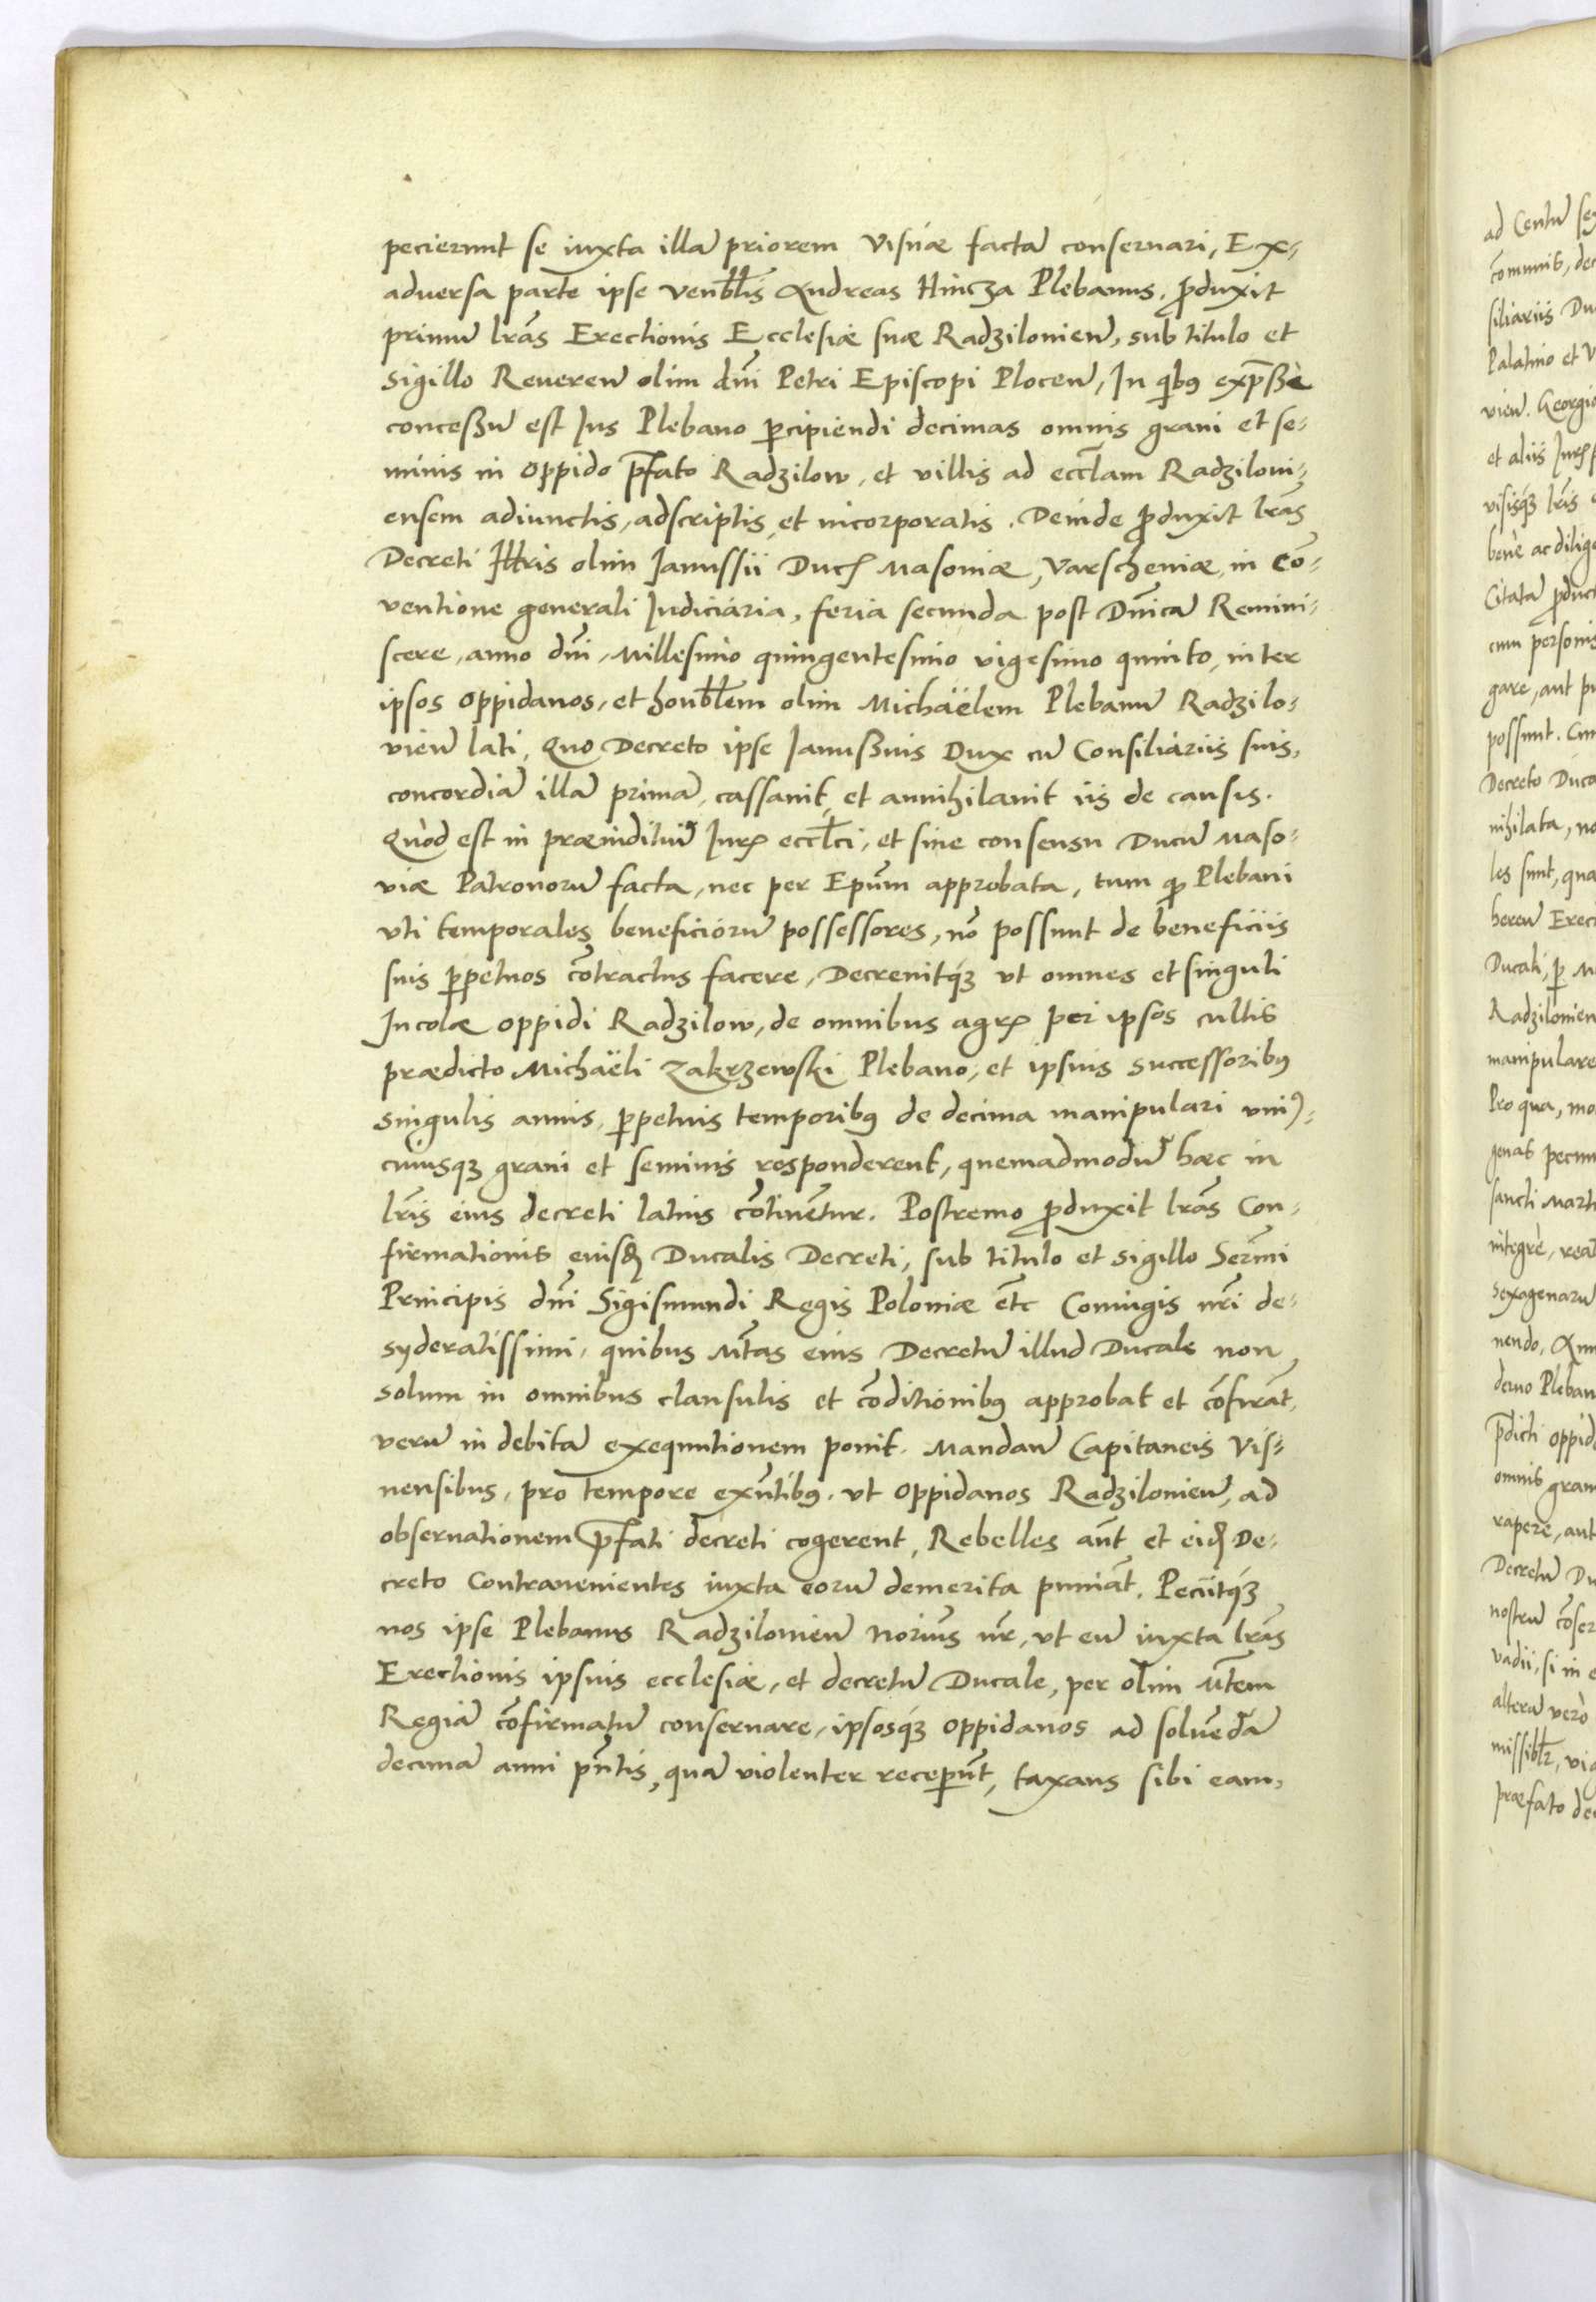 pecierunt se iuxta illā priorem Visnæ factā conseruari, Ex-
aduersa parte ipse venbłis Andreas Hincza Plebanus, p̄duxit
primū lr̄as Erectionis Ecclesiæ suæ Radzilouieñ, sub titulo et
sigillo Reuereñ olim dn̄i Petri Episcopi Ploceñ, In qibꝰ exp̄ßè
conceßū est Ius Plebano ꝑcipiendi decimas omnis grani et se-
minis in oppido p̄fato Radzilow, et villis ad eccłam Radziloui-
ensem adiunctis, adscriptis, et incorporatis. Deinde ꝓduxit lr̄as
Decreti Iłłris olim Ianussii Ducꝭ Masouiæ, Varscheuiæ, in Cō-
uentione generali Iudiciaria, feria secunda post Dn̄icā Remini-
scere, anno dn̄i, Millesimo quingentesimo vigesimo quinto, inter
ipsos oppidanos, et honbłem olim Michaëlem Plebanū Radzilo-
uieñ lati, Quo Decreto ipse Ianußius Dux cū Consiliariis suis,
concordiā illā primā, cassauit, et annihilauit iis de causis.
Quòd est in præiuditiū Iurꝭ eccłci, et sine consensu Ducū Maso-
uiæ Patronorū facta, nec per Ep̄um approbata, tum qꝫ Plebani
vti temporales beneficiorū possessores, nō possunt de beneficiis
suis ꝑpetuos cōtractus facere, Decreuitqꝫ vt omnes et singuli
Incolæ oppidi Radzilow, de omnibus agrꝭ per ipsos cultis
prædicto Michaëli Zakrzewski Plebano, et ipsius successoribꝰ
singulis annis, ꝑpetuis temporibꝰ de decima manipulari vniꝰ-
cuiusqꝫ grani et seminis responderent, quemadmodū hæc in
lr̄is eius decreti latius cōtinētur. Postremo ꝓduxit lr̄as Con-
firmationis eiusꝺ Ducalis Decreti, sub titulo et sigillo Serm̄i
Principis dn̄i Sigismundi Regis Poloniæ et̄c Coniugis nr̄i de-
syderatissimi, quibus Mt̄as eius Decretū illud Ducale non
solum in omnibus clausulis et cōditionibꝰ approbat et cōfirāt,
verū in debitā exequutionem ponit. Mandañ Capitaneis Vis-
nensibus, pro tempore exn̄tibꝰ, vt oppidanos Radziloueiñ, ad
obseruationem p̄fati decreti cogerent, Rebelles aūt et eiꝺ De-
creto Contrauenientes iuxta eorū demerita puniāt. Peciitqꝫ
nos ipse Plebanus Radziloueiñ noīus nr̄, vt eū iuxta lr̄as
Erectionis ipsius ecclesiæ, et decretū Ducale, per olim Mt̄em
Regiā cōfirmatū conseruare, ipsosqꝫ oppidanos ad soluēdā
decimā anni pn̄tis, quā violenter receꝑūt, taxans sibi eam,
ad Centū
cōmunis,
siliariis
Palatino et
vieñ. Georgio
et aliis
visisqꝫ lr̄is
benè ac
Citatā
cum personis
gare, aut
possunt.
Decreto
nihilata,
les sunt,
bereñ
Ducali, ꝑ
Radziloueiñ
manipulare
Pro qua,
genas
sancti
integrè,
sexagenarū
nendo,
p̄dicti
omnis
rapere, aut
Decretū
nostrū
vadii, si in
alterū verò
præfato